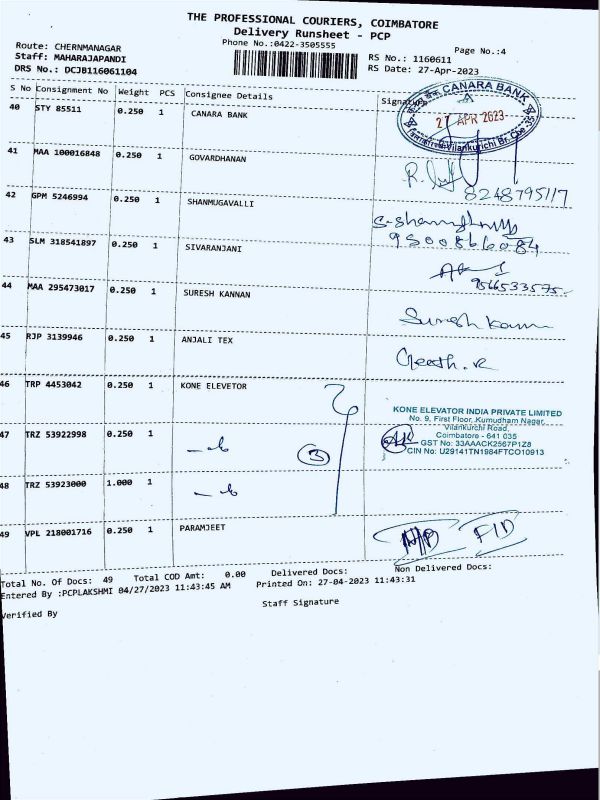 THE PROFESSIONAL COURIERS, COIMBATORE
Delivery Runsheet - PCP
Phone No.:0422-3505555
Page No.:4
Route: CHERNMANAGAR
Staff: MAHARAJAPANDI
RS No.: 1160611
DRS No.: DCJB116061104
RS Date: 27-Apr-2023
S No Consignment No Weight PCS Consignee Details Signature
40 STY 85511 0.250 1 CANARA BANK
CANARA BANK
27 APR 2023
Vilankurichi Br. Cbe-35
41 MAA 100016848 0.250 1 GOVARDHANAN
8248795117
42 GPM 5246994 0.250 1 SHANMUGAVALLI
9500866084
43 SLM 318541897 0.250 1 SIVARANJANI
9566533575
44 MAA 295473017 0.250 1 SURESH KANNAN
Suresh Kannan
45 RJP 3139946 0.250 1 ANJALI TEX
Geeth. R
46 TRP 4453042 0.250 1 KONE ELEVETOR
KONE ELEVATOR INDIA PRIVATE LIMITED
No. 9, First Floor, Kumudham Nagar,
Vilankurchi Road,
Coimbatore - 641 035
GST No: 33AAACK2567P1Z8
CIN No: U29141TN1984FTCO10913
47 TRZ 53922998 0.250 1
3
48 TRZ 53923000 1.000 1
49 VPL 218001716 0.250 1 PARAMJEET
Total No. Of Docs: 49 Total COD Amt: 0.00 Delivered Docs: Non Delivered Docs:
Entered By :PCPLAKSHMI 04/27/2023 11:43:45 AM Printed On: 27-04-2023 11:43:31
Staff Signature
Verified By